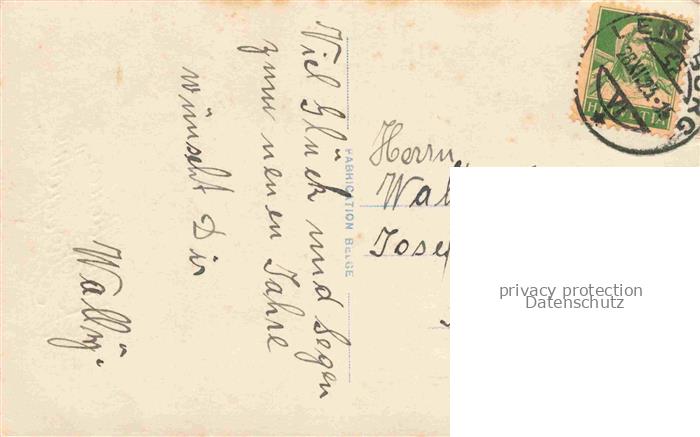 Viel Glück und Segen
zum neuen Jahre
wünscht Dir
Willy.
FABRICATION BELGE
Herrn
HELVETIA
privacy protection
Datenschutz